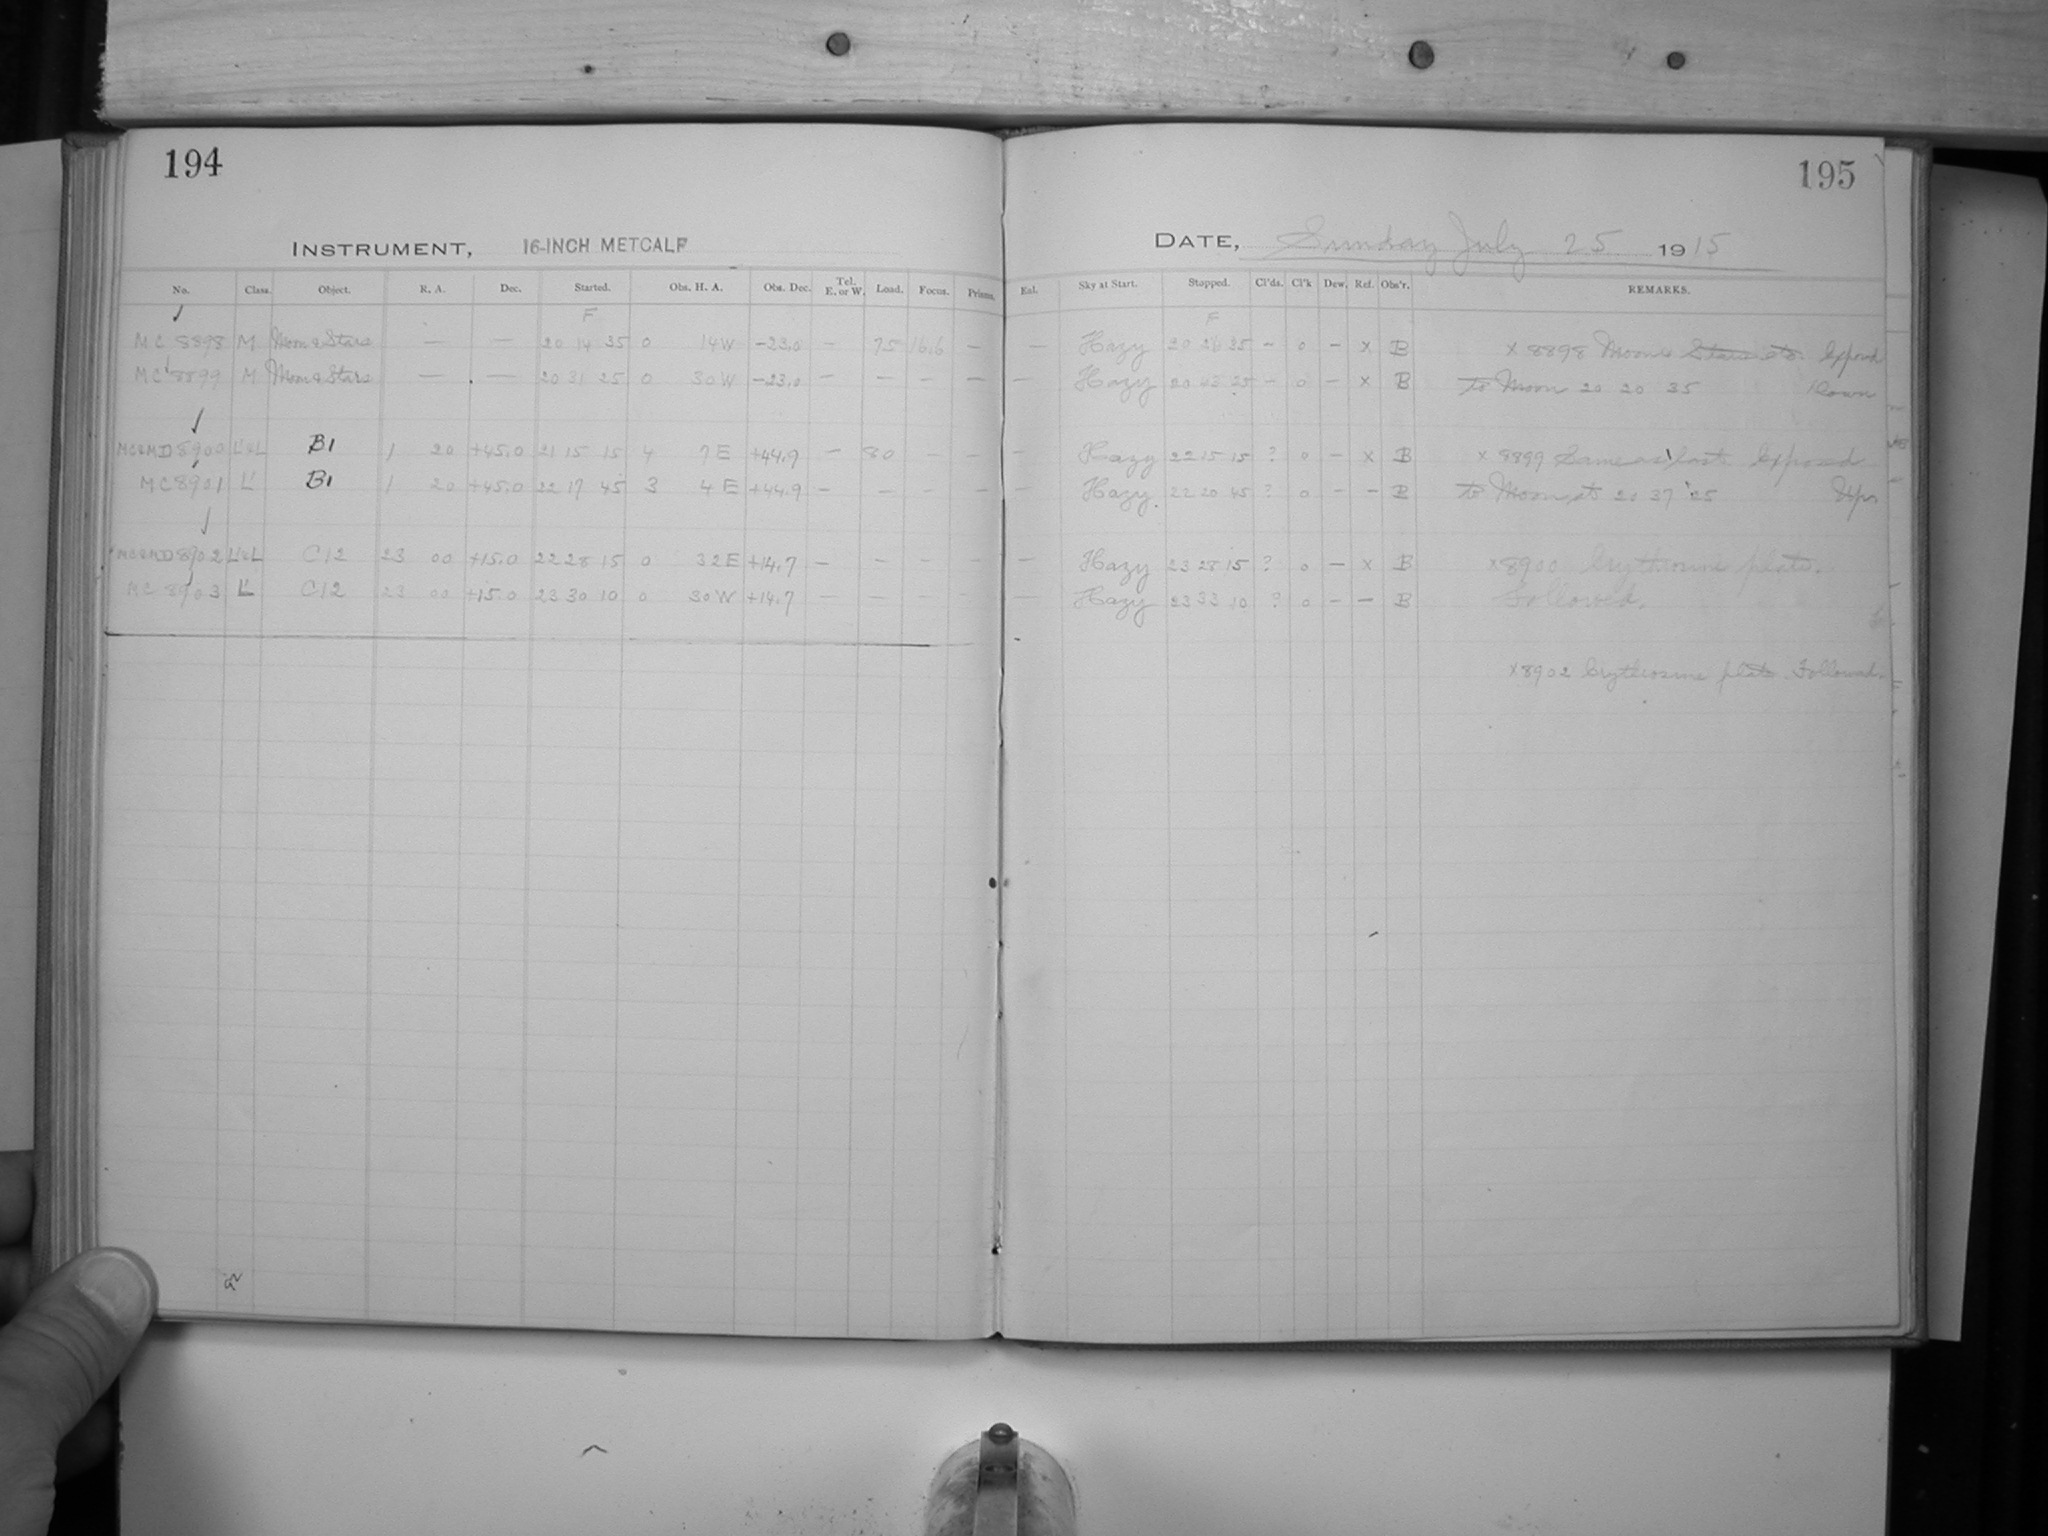 194
INSTRUMENT, 16-INCH METCALF
No. Class. Object. R. A. Dec. Started. Obs. H. A. Obs. Dec. Tel. E. or W. Load. Focus. Prisms.
F
MC 8898 M Moon & Stars — — 20 14 35 0 14 W -23.0 — 75 16.6 —
MC 8899 M Moon & Stars — — 20 31 25 0 30 W -23.0 — — — —
MC & MD 8900 L' & L B1 1 20 +45.0 21 15 15 4 7 E +44.9 — 80 — —
MC 8901 L' B1 1 20 +45.0 22 17 45 3 4 E +44.9 — — — —
MC & MD 8902 L' & L C12 23 00 +15.0 22 28 15 0 32 E +14.7 — — — —
MC 8903 L' C12 23 00 +15.0 23 30 10 0 30 W +14.7 — — — —
195
DATE, Sunday July 25 1915
Exl. Sky at Start. Stopped. Cl'ds. Cl'k Dew. Ref. Obs'r. REMARKS.
F
— Hazy 20 26 35 — 0 — x B x 8898 Moon & Stars etc. Exposed
— Hazy 20 43 25 — 0 — x B to Moon 20 20 35
— Hazy 22 15 15 ? 0 — x B x 8899 Same as last Exposed
— Hazy 22 20 45 ? 0 — — B to Moon at 20 37 25
— Hazy 23 28 15 ? 0 — x B x 8900 Erythrosine plate.
— Hazy 23 33 10 ? 0 — — B Followed.
x 8902 Erythrosine plate. Followed.